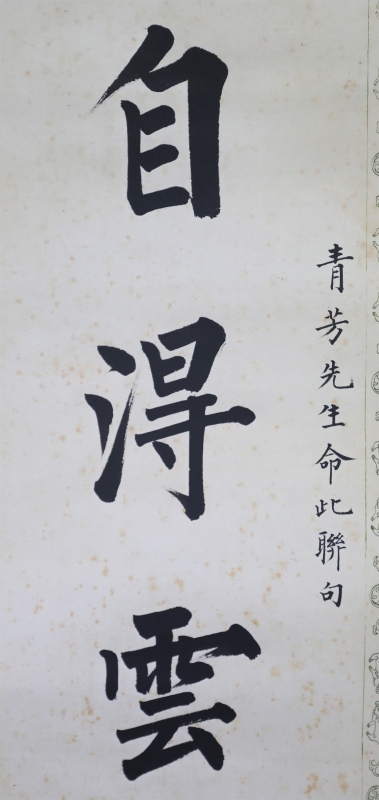 青芳先生命此聯句
自得雲